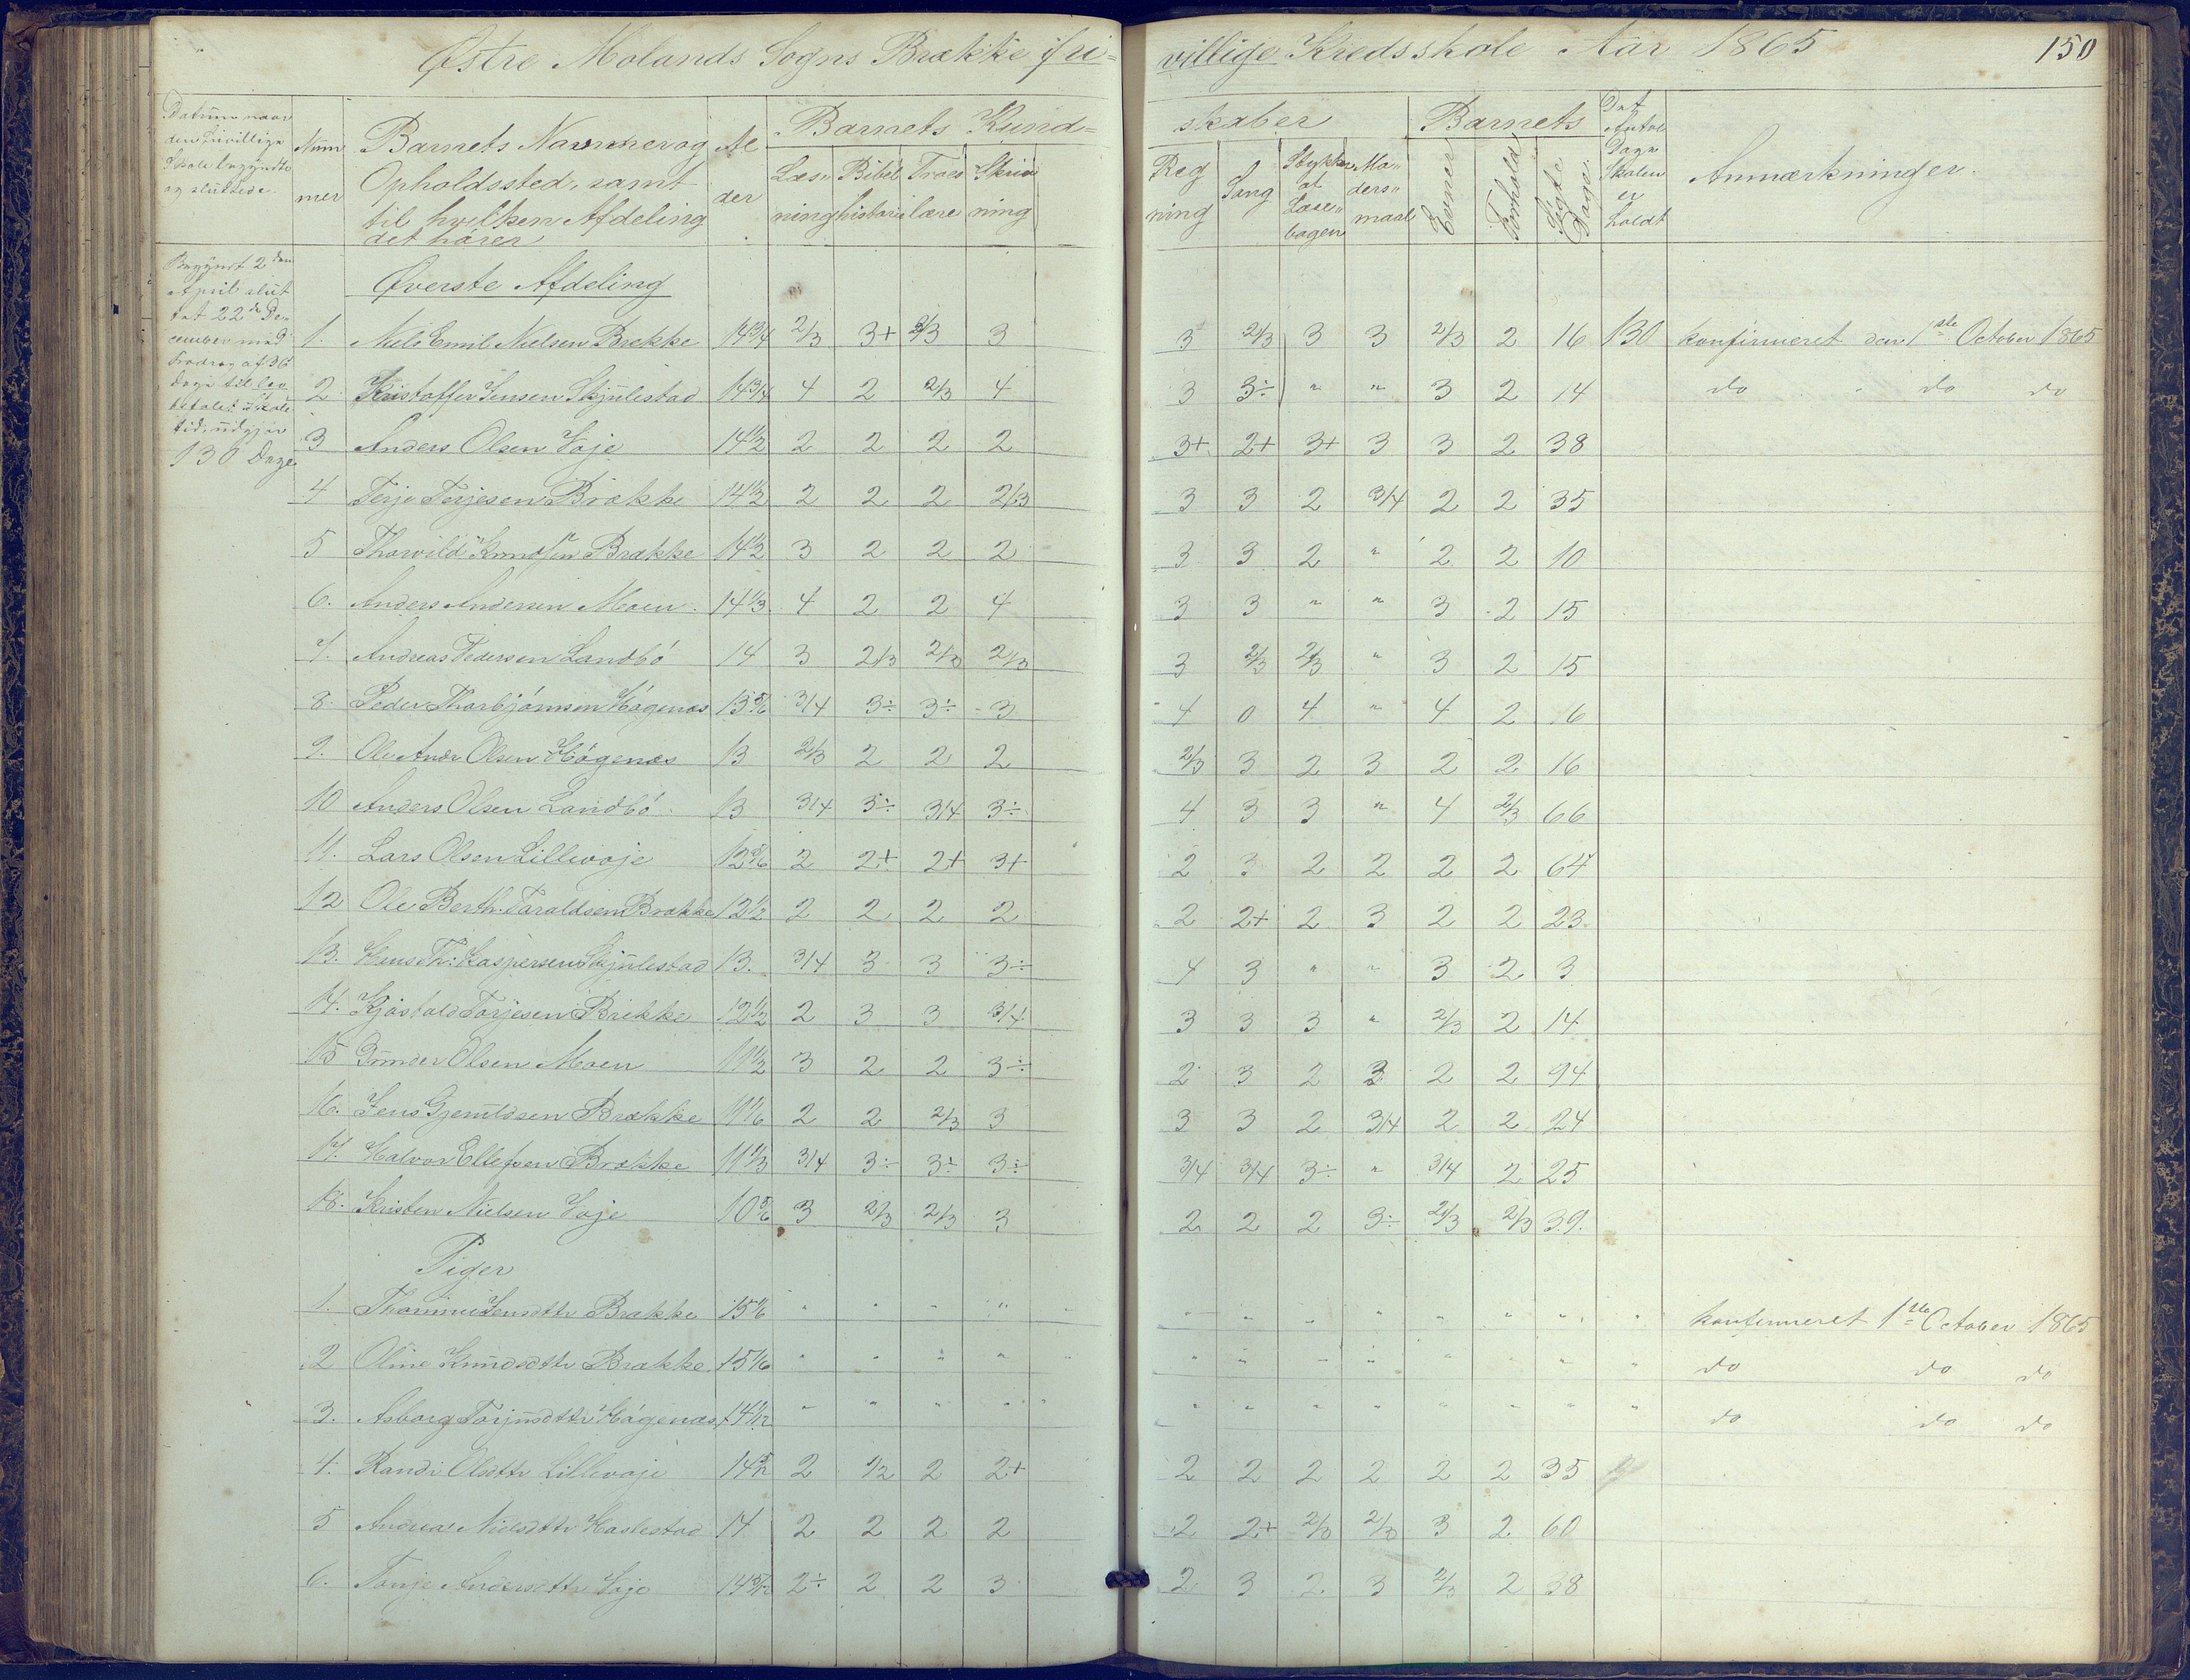 Østre Molands Sogns Brække fri=
villige Kredsskole Aar 1865
150
Datum naar den frivillige Skole begyndte og sluttede.
Nummer
Barnets Navn og Opholdssted, samt til hvilken Afdeling det hører
Alder
Barnets Kund=
skaber
Læsning
Bibelhistorie
Troeslære
Skrivning
Regning
Sang
Stykker af Læsebogen
Modersmaal
Barnets
Evner
Forhold
Søgte Dage
Det Antal Dage Skolen er holdt
Anmærkninger.
Begyndt 2den
April slut
tet 22de De-
cember med
Fradrag af 36
Dage til
Skole
tid, udgjør
130 Dage
Øverste Afdeling
1. Niels Emil Nielsen Brække 14 3/4 2/3 3+ 2/3 3 3 2/3 3 3 2/3 2 16 130 konfirmeret den 1ste October 1865
2 Kristoffer Jensen Skjulestad 14 3/4 4 2 2/3 4 3 3÷ " " 3 2 14 do do do
3 Anders Olsen Voje 14 1/2 2 2 2 2 3+ 2+ 3+ 3 3 2 38
4 Terje Terjesen Brække 14 1/2 2 2 2 2/3 3 3 2 3/4 2 2 35
5 Thorvild Knudsen Brække 14 1/2 3 2 2 2 3 3 2 " 2 2 10
6. Anders Andersen Moen 14 1/3 4 2 2 4 3 3 " " 3 2 15
7. Andreas Pedersen Landbö 14 3 2/3 2/3 2/3 3 2/3 2/3 " 3 2 15
8. Peder Thorbjörnsen Högenæs 13 5/6 3/4 3÷ 3÷ 3 4 0 4 " 4 2 16
9. Ole Andr Olsen Högenæs 13 2/3 2 2 2 2/3 3 2 3 2 2 16
10 Anders Olsen Landbö 13 3/4 3÷ 3/4 3÷ 4 3 3 " 4 2/3 66
11. Lars Olsen Lillevoje 12 5/6 2 2+ 2+ 3+ 2 3 2 2 2 2 64
12 Ole Berth. Taraldsen Brække 12 1/2 2 2 2 2 2 2+ 2 3 2 2 23
13. Hans Th: Kaspersen Skjulestad 13. 3/4 3 3 3÷ 4 3 " " 3 2 3
14. Kjöstolv Torjesen Brække 12 1/2 2 3 3 3/4 3 3 3 " 2/3 2 14
15 Gunder Olsen Moen 11 1/2 3 2 2 3÷ 2 3 2 3 2 2 94
16. Jens Gjeruldsen Brække 11 1/6 2 2 2/3 3 3 3 2 3/4 2 2 24
17. Halvor Ellefsen Brække 11 1/3 3/4 3÷ 3÷ 3÷ 3/4 3/4 3÷ " 3/4 2 25
18. Kristen Nielsen Voje 10 5/6 3 2/3 2/3 3 2 2 2 3÷ 2/3 2/3 39.
Piger
1. Thomine Jensdttr Brække 15 1/6 " " " " " " " " " " " " konfirmeret 1ste October 1865
2 Oline Knudsdttr Brække 15 1/6 " " " " " " " " " " " " do do do
3. Asborg Torjusdttr Högenæs 14 1/12 " " " " " " " " " " " " do do do
4. Randi Olsdttr Lillevoje 14 5/12 2 1/2 2 2+ 2 2 2 2 2 2 35
5 Andrea Nielsdttr Haslestad 14 2 2 2 2 2 2+ 2/3 2/3 3 2 60
6. Tonje Andersdttr Voje 14 5/12 2÷ 2 2 3 2 3 2 3 2/3 2 38